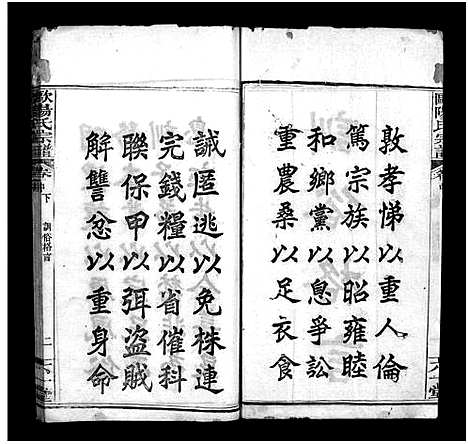 歐陽氏宗譜
敦孝悌以重人倫
篤宗族以昭雍睦
和鄉黨以息爭訟
重農桑以足衣食
誠匿逃以免株連
完錢糧以省催科
聯保甲以弭盜賊
解讐忿以重身命
歐陽氏宗譜 卷中下 訓俗格言 二 六一堂